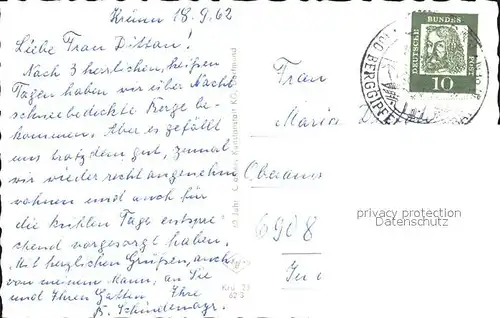 Krünn 18.9.62
Liebe Frau Dittan!
Nach 3 herrlichen, heißen
Tagen haben wir über Nacht
schneebedeckte Berge be-
kommen. Aber es gefällt
uns trotzdem gut, zumal
wir wieder recht angenehm
wohnen und auch für
die kühlen Tage entspre-
chend vorgesorgt haben.
Mit herzlichen Grüßen, auch
von meinem Mann, an Sie
und Ihren Gatten, Ihre
Frau
Maria D
6908
DEUTSCHE BUNDESPOST
10
privacy protection
Datenschutz